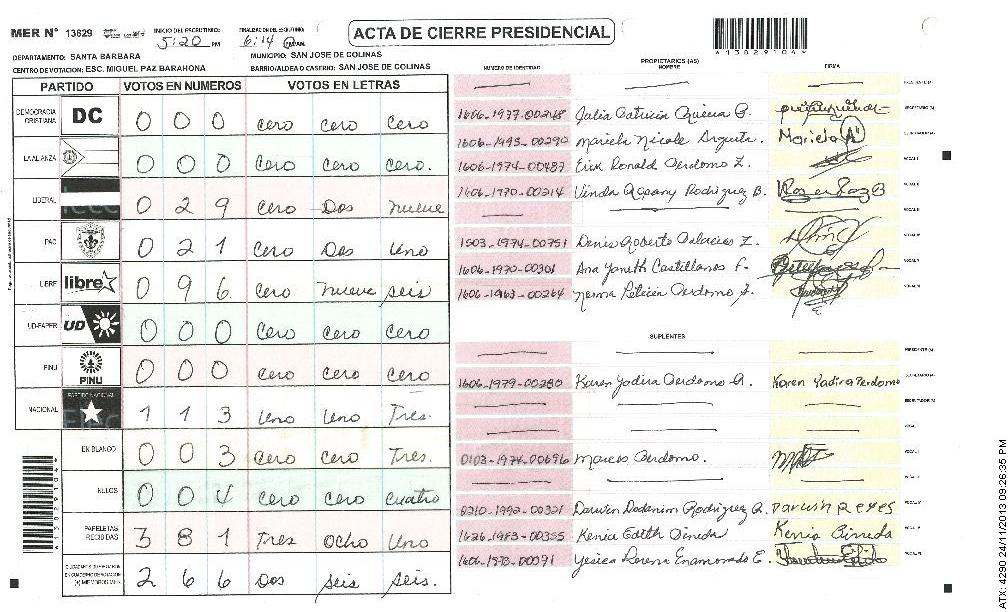 MER Nº 13629 INICIO DEL ESCRUTINIO: 5:20 PM FINALIZACION DEL ESCRUTINIO: 6:14 PM ACTA DE CIERRE PRESIDENCIAL
*13629104*
DEPARTAMENTO: SANTA BARBARA MUNICIPIO: SAN JOSE DE COLINAS
CENTRO DE VOTACION: ESC. MIGUEL PAZ BARAHONA BARRIO/ALDEA O CASERIO: SAN JOSE DE COLINAS
PARTIDO VOTOS EN NUMEROS VOTOS EN LETRAS
DEMOCRACIA CRISTIANA DC 0 0 0 Cero Cero Cero
LA ALIANZA 0 0 0 Cero Cero Cero.
LIBERAL 0 2 9 Cero Dos nueve
PAC 0 2 1 Cero Dos Uno
LIBRE libre 0 9 6 Cero nueve seis
UD-FAPER UD 0 0 0 Cero Cero Cero
PINU PINU 0 0 0 Cero Cero Cero
NACIONAL PARTIDO NACIONAL 1 1 3 Uno Uno Tres.
EN BLANCO 0 0 3 Cero Cero Tres.
NULOS 0 0 4 Cero Cero Cuatro
PAPELETAS RECIBIDAS 3 8 1 Tres Ocho Uno
2 6 6 Dos seis seis.
PROPIETARIOS (AS)
NUMERO DE IDENTIDAD NOMBRE FIRMA
PRESIDENTE (A)
1606-1977-00248 Julia Patricia B. SECRETARIO (A)
1606-1993-00290 Mariela Nicole Argueta Mariela A ESCRUTADOR (A)
1606-1974-00487 Erik Ronald Perdomo Z. VOCAL I
1606-1970-00214 Rodriguez B. VOCAL II
VOCAL III
1503-1974-00751 Denis Roberto Palacios Z. VOCAL IV
1606-1970-00301 Ana Yaneth Castellanos F. VOCAL V
1606-1963-00264 Norma Leticia Perdomo VOCAL VI
SUPLENTES
PRESIDENTE (A)
1606-1979-00280 Karen Yadira Perdomo Karen Yadira Perdomo SECRETARIO (A)
ESCRUTADOR (A)
VOCAL I
0103-1974-00696 Marcos Perdomo. VOCAL II
VOCAL III
0210-1992-00321 Darwin Rodriguez R. Darwin Reyes VOCAL IV
1626-1983-00355 Kenia Edith Pineda Kenia Pineda VOCAL V
Yesica Lorena Enamorado E. VOCAL VI
ATX: 4290 24/11/2013 09:26:35 PM